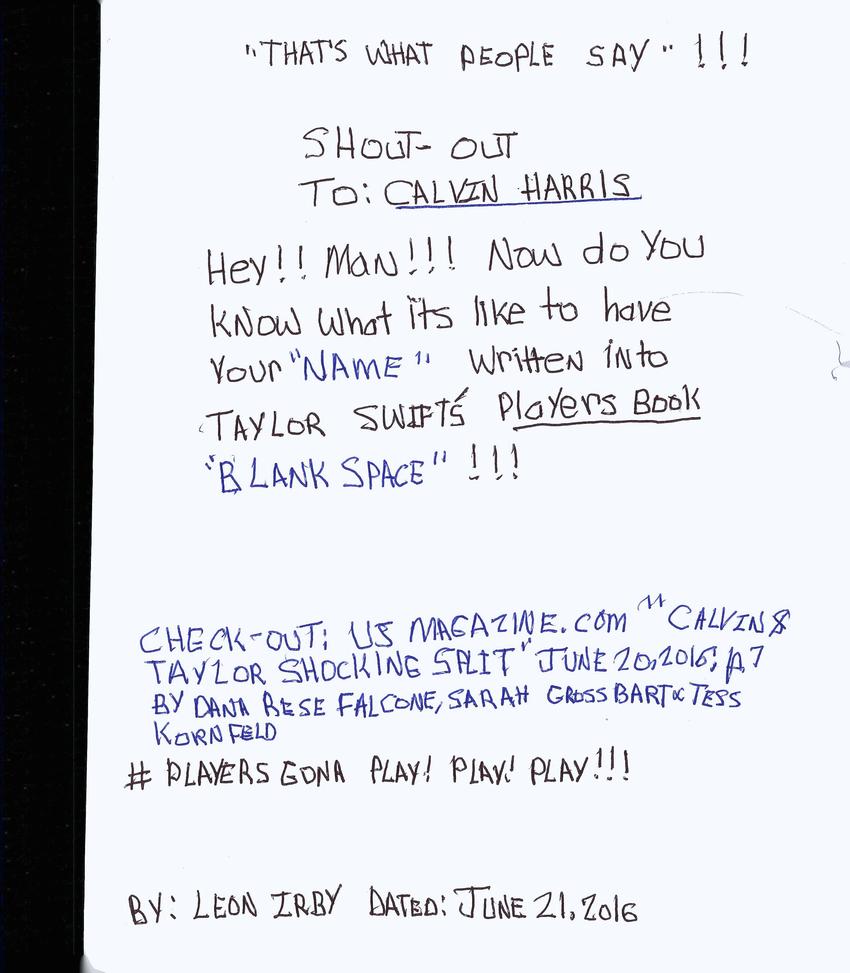 "THAT'S WHAT PEOPLE SAY" !!!
SHOUT- OUT
TO: CALVIN HARRIS
Hey!! Man!!! Now do You
KNOW What its like to have
Your "NAME" Written into
TAYLOR SWIFT'S Players Book
"BLANK SPACE" !!!
CHECK-OUT: US MAGAZINE.COM "CALVIN &
TAYLOR SHOCKING SPLIT" JUNE 20, 2016; p.7
BY DANA RESE FALCONE, SARAH GROSSBART & TESS
KORNFELD
# PLAYERS GONA PLAY! PLAY! PLAY!!!
BY: LEON IRBY DATED: JUNE 21, 2016